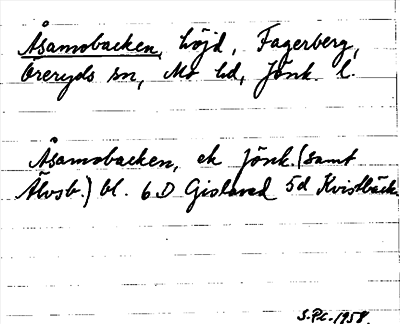 Åsamobacken, höjd, Fagerberg,
Öreryds sn, Mo hd, Jönk. l.
Åsamobacken, ek Jönk. (samt
Älvsb.) bl. 6D Gislaved 5d Kvistbäck
S.Pl. 1958.